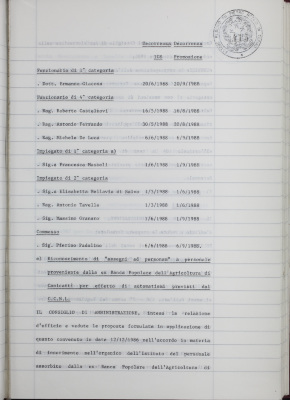 Decorrenza Decorrenza
VCR Promozione
Funzionario di 1^ categoria
. Dott. Ermanno Giacosa 20/6/1988 10/8/1988
Funzionario di 4^ categoria
. Rag. Roberto
. Rag. Antonio 30/5/1988
. Rag. Michele De Luca 6/6/1988
Impiegato di 1^ categoria a)
. Sig.a Francesca 1/6/1988 1/9/1988
Impiegato di 2^ categoria
. Sig.a Elisabetta 1/3/1988 1/6/1988
. Rag. Antonio Tavella 1/3/1988 1/6/1988
. Sig. Massimo Granaro 1/6/1988 1/9/1988
Commesso
. Sig. Pierino Nadalino 6/6/1988 6/9/1988.
e) Riconoscimento di "assegni ad personam" a personale
proveniente dalla ex Banca Popolare dell'Agricoltura di
Canicattì per effetto di automatismi previsti dal
C.C.N.L.
IL CONSIGLIO DI AMMINISTRAZIONE, intesa la relazione
d'ufficio e vedute le proposte formulate in applicazione di
quanto convenuto in data 17/12/1986 nell'accordo in materia
di inserimento nell'organico dell'Istituto del personale
assorbito dalla ex Banca Popolare dell'Agricoltura di